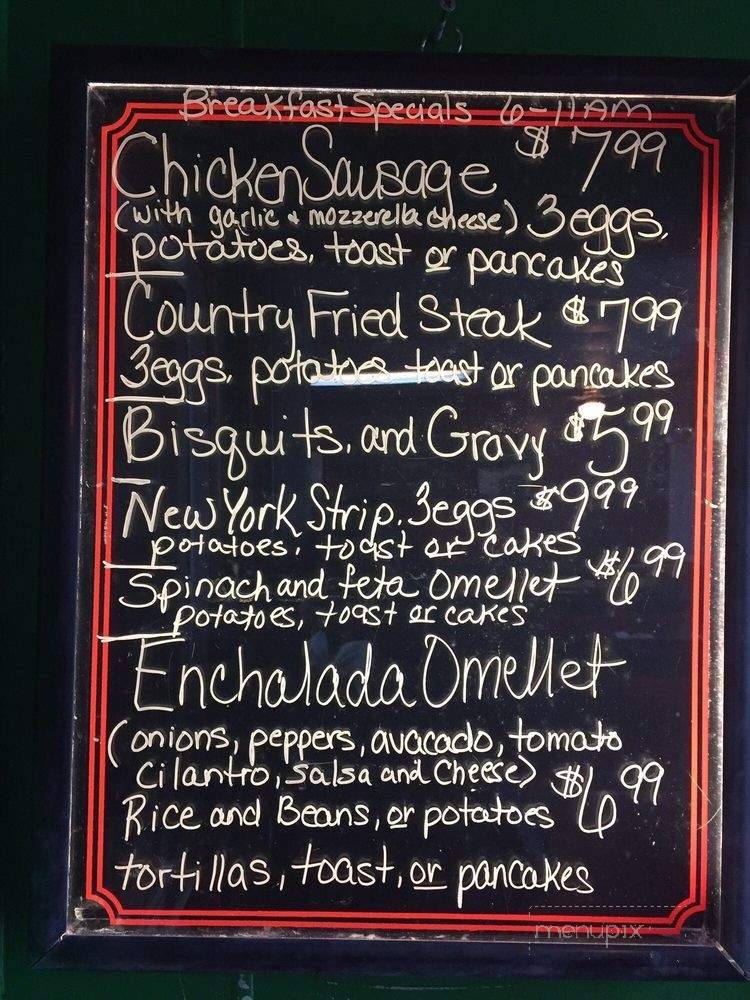 Breakfast Specials 6-11AM
Chicken Sausage $7.99
(with garlic & mozzerella cheese) 3 eggs,
potatoes, toast or pancakes
Country Fried Steak $7.99
3 eggs, potatoes toast or pancakes
Bisquits, and Gravy $5.99
New York Strip, 3 eggs $9.99
potatoes, toast or cakes
Spinach and feta Omellet $6.99
potatoes, toast or cakes
Enchalada Omellet
(onions, peppers, avacado, tomato
cilantro, salsa and Cheese) $6.99
Rice and Beans, or potatoes
tortillas, toast, or pancakes
menupix